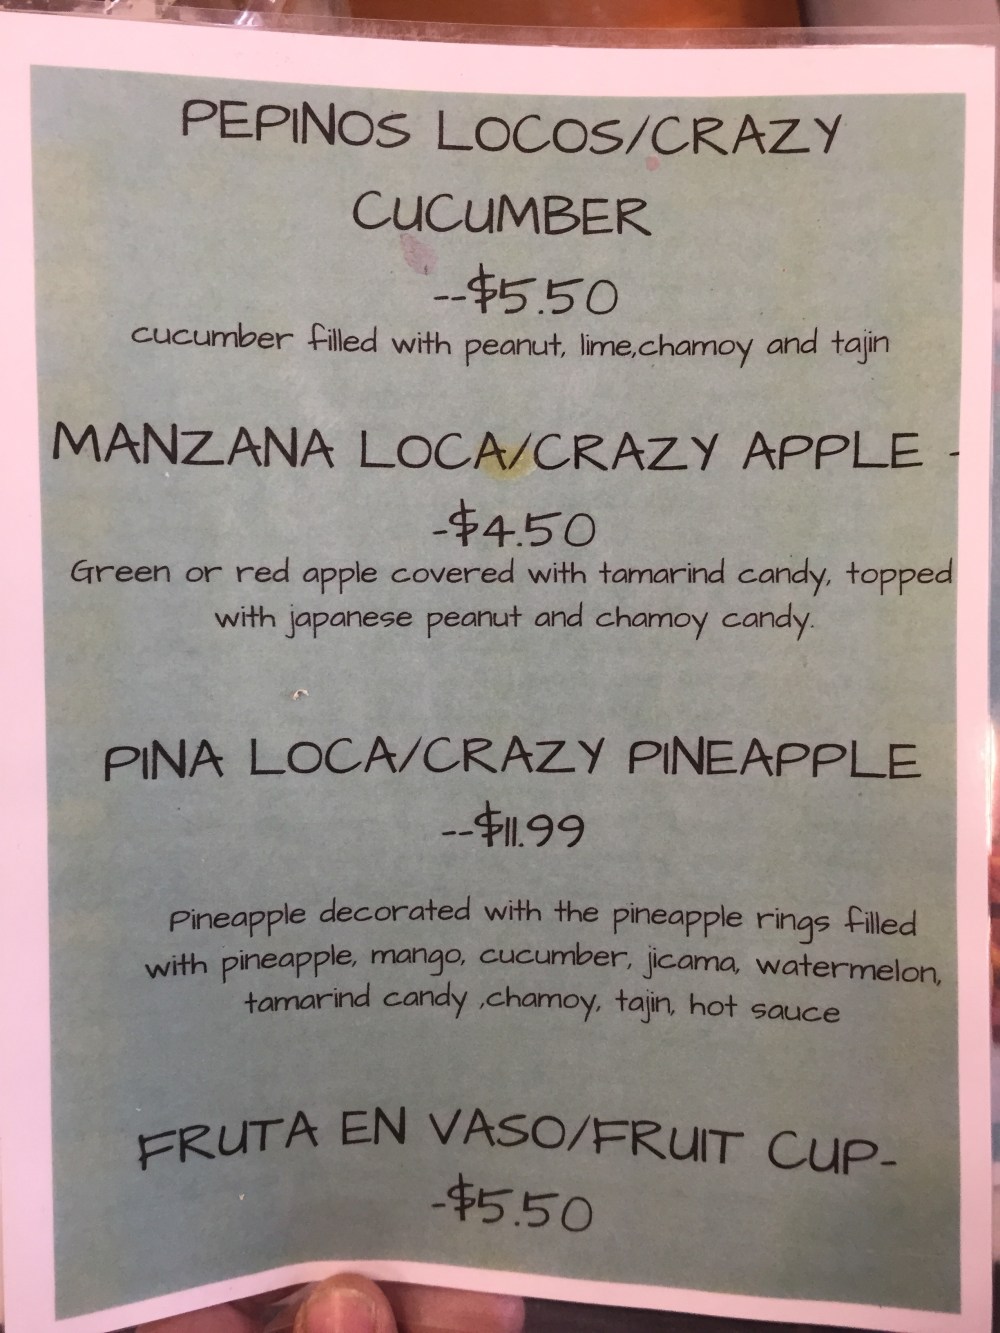 PEPINOS LOCOS/CRAZY
CUCUMBER
--$5.50
cucumber filled with peanut, lime,chamoy and tajin
MANZANA LOCA/CRAZY APPLE -
-$4.50
Green or red apple covered with tamarind candy, topped
with japanese peanut and chamoy candy.
PINA LOCA/CRAZY PINEAPPLE
--$11.99
Pineapple decorated with the pineapple rings filled
with pineapple, mango, cucumber, jicama, watermelon,
tamarind candy ,chamoy, tajin, hot sauce
FRUTA EN VASO/FRUIT CUP-
-$5.50